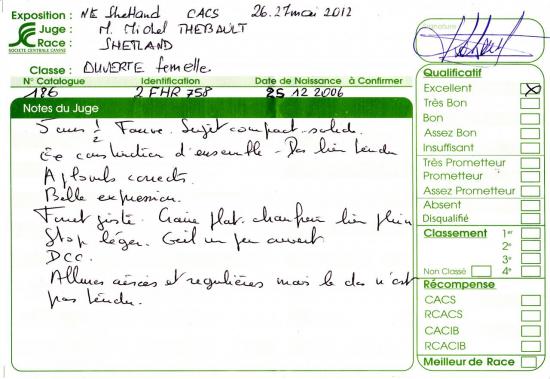 Exposition : NE Shetland CACS 26.27 mai 2012
Juge : M. Michel THEBAULT
Race : SHETLAND
SOCIETE CENTRALE CANINE
Classe : OUVERTE femelle
N° Catalogue Identification Date de Naissance à Confirmer
186 2 FHR 758 25 12 2006
Notes du Juge
5 ans 1/2 Fauve. Sujet compact. solide.
construction d'ensemble - Dos bien tendu
Aplombs corrects.
Belle expression.
Fouet Crâne plat. chanfrein bien plein
Stop léger. Oeil un peu ouvert
DCC.
Allures aisées et regulières mais le dos n'est
pas tendu.
Signature
Qualificatif
Excellent X
Très Bon
Bon
Assez Bon
Insuffisant
Très Prometteur
Prometteur
Assez Prometteur
Absent
Disqualifié
Classement 1er
2e
3e
Non Classé 4e
Récompense
CACS
RCACS
CACIB
RCACIB
Meilleur de Race